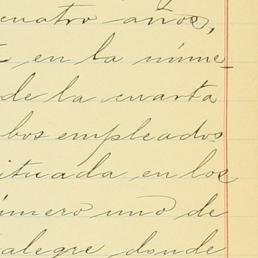 cuatro años,
en la núme-
de la cuarta
bos empleados
ituada en los
úmero uno de
alegre donde